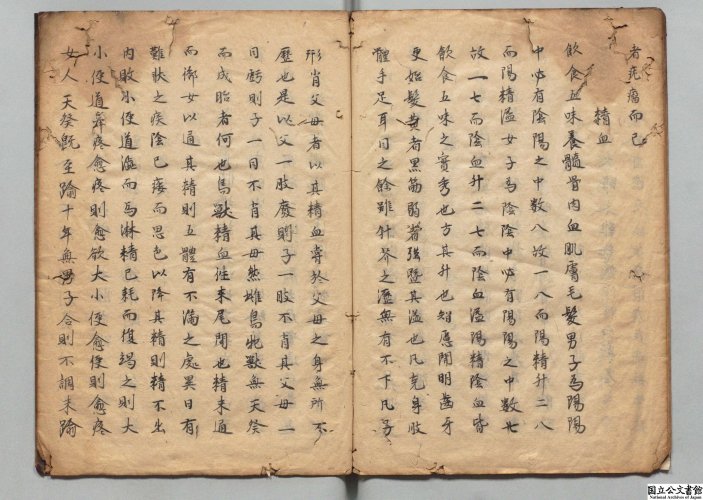 者疣瘤而已
精血
飲食五味養髓骨肉血肌膚毛髮男子為陽陽
中必有陰陰之中數八故一八而陽精升二八
而陽精溢女子為陰陰中必有陽陽之中數七
故一七而陰血升二七而陰血溢陽精陰血皆
飲食五味之實秀也方其升也智慮開明齒牙
更始髮黃者黑筋弱者強暨其溢也凡充身肢
體手足耳目之餘雖針芥之瀝無有不下凡子
形肖父母者以其精血嘗於父母之身無所不
歷也是以父一肢廢則子一肢不肖其父母一
目虧則子一目不肖其母然雌鳥牝獸無天癸
而成胎者何也鳥獸精血往来尾間也精未通
而御女以通其精則五體有不滿之處異日有
難狀之疾陰已痿而思色以降其精則精不出
内敗小便道澁而為淋精已耗而復竭之則大
小便道牽疼愈疼則愈欲大小便愈便則愈疼
女人天癸既至踰十年無男子合則不調未踰
国立公文書館
National Archives of Japan